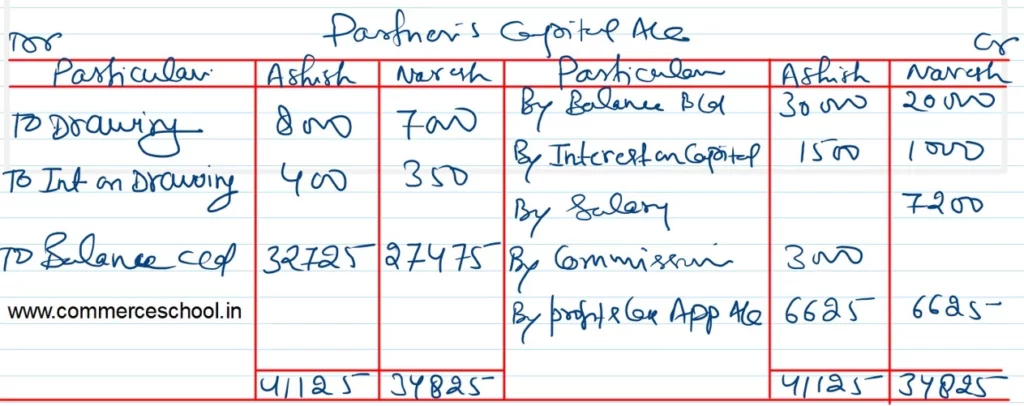 Partner's Capital A/c
Dr Cr
Particular Ashish Naresh Particular Ashish Naresh
To Drawing 8000 7000 By Balance B/d 30000 20000
To Int on Drawing 400 350 By Interest on Capital 1500 1000
By Salary 7200
To Balance c/d 32725 27475 By Commission 3000
www.commerceschool.in By profit & loss App A/c 6625 6625
41125 34825 41125 34825